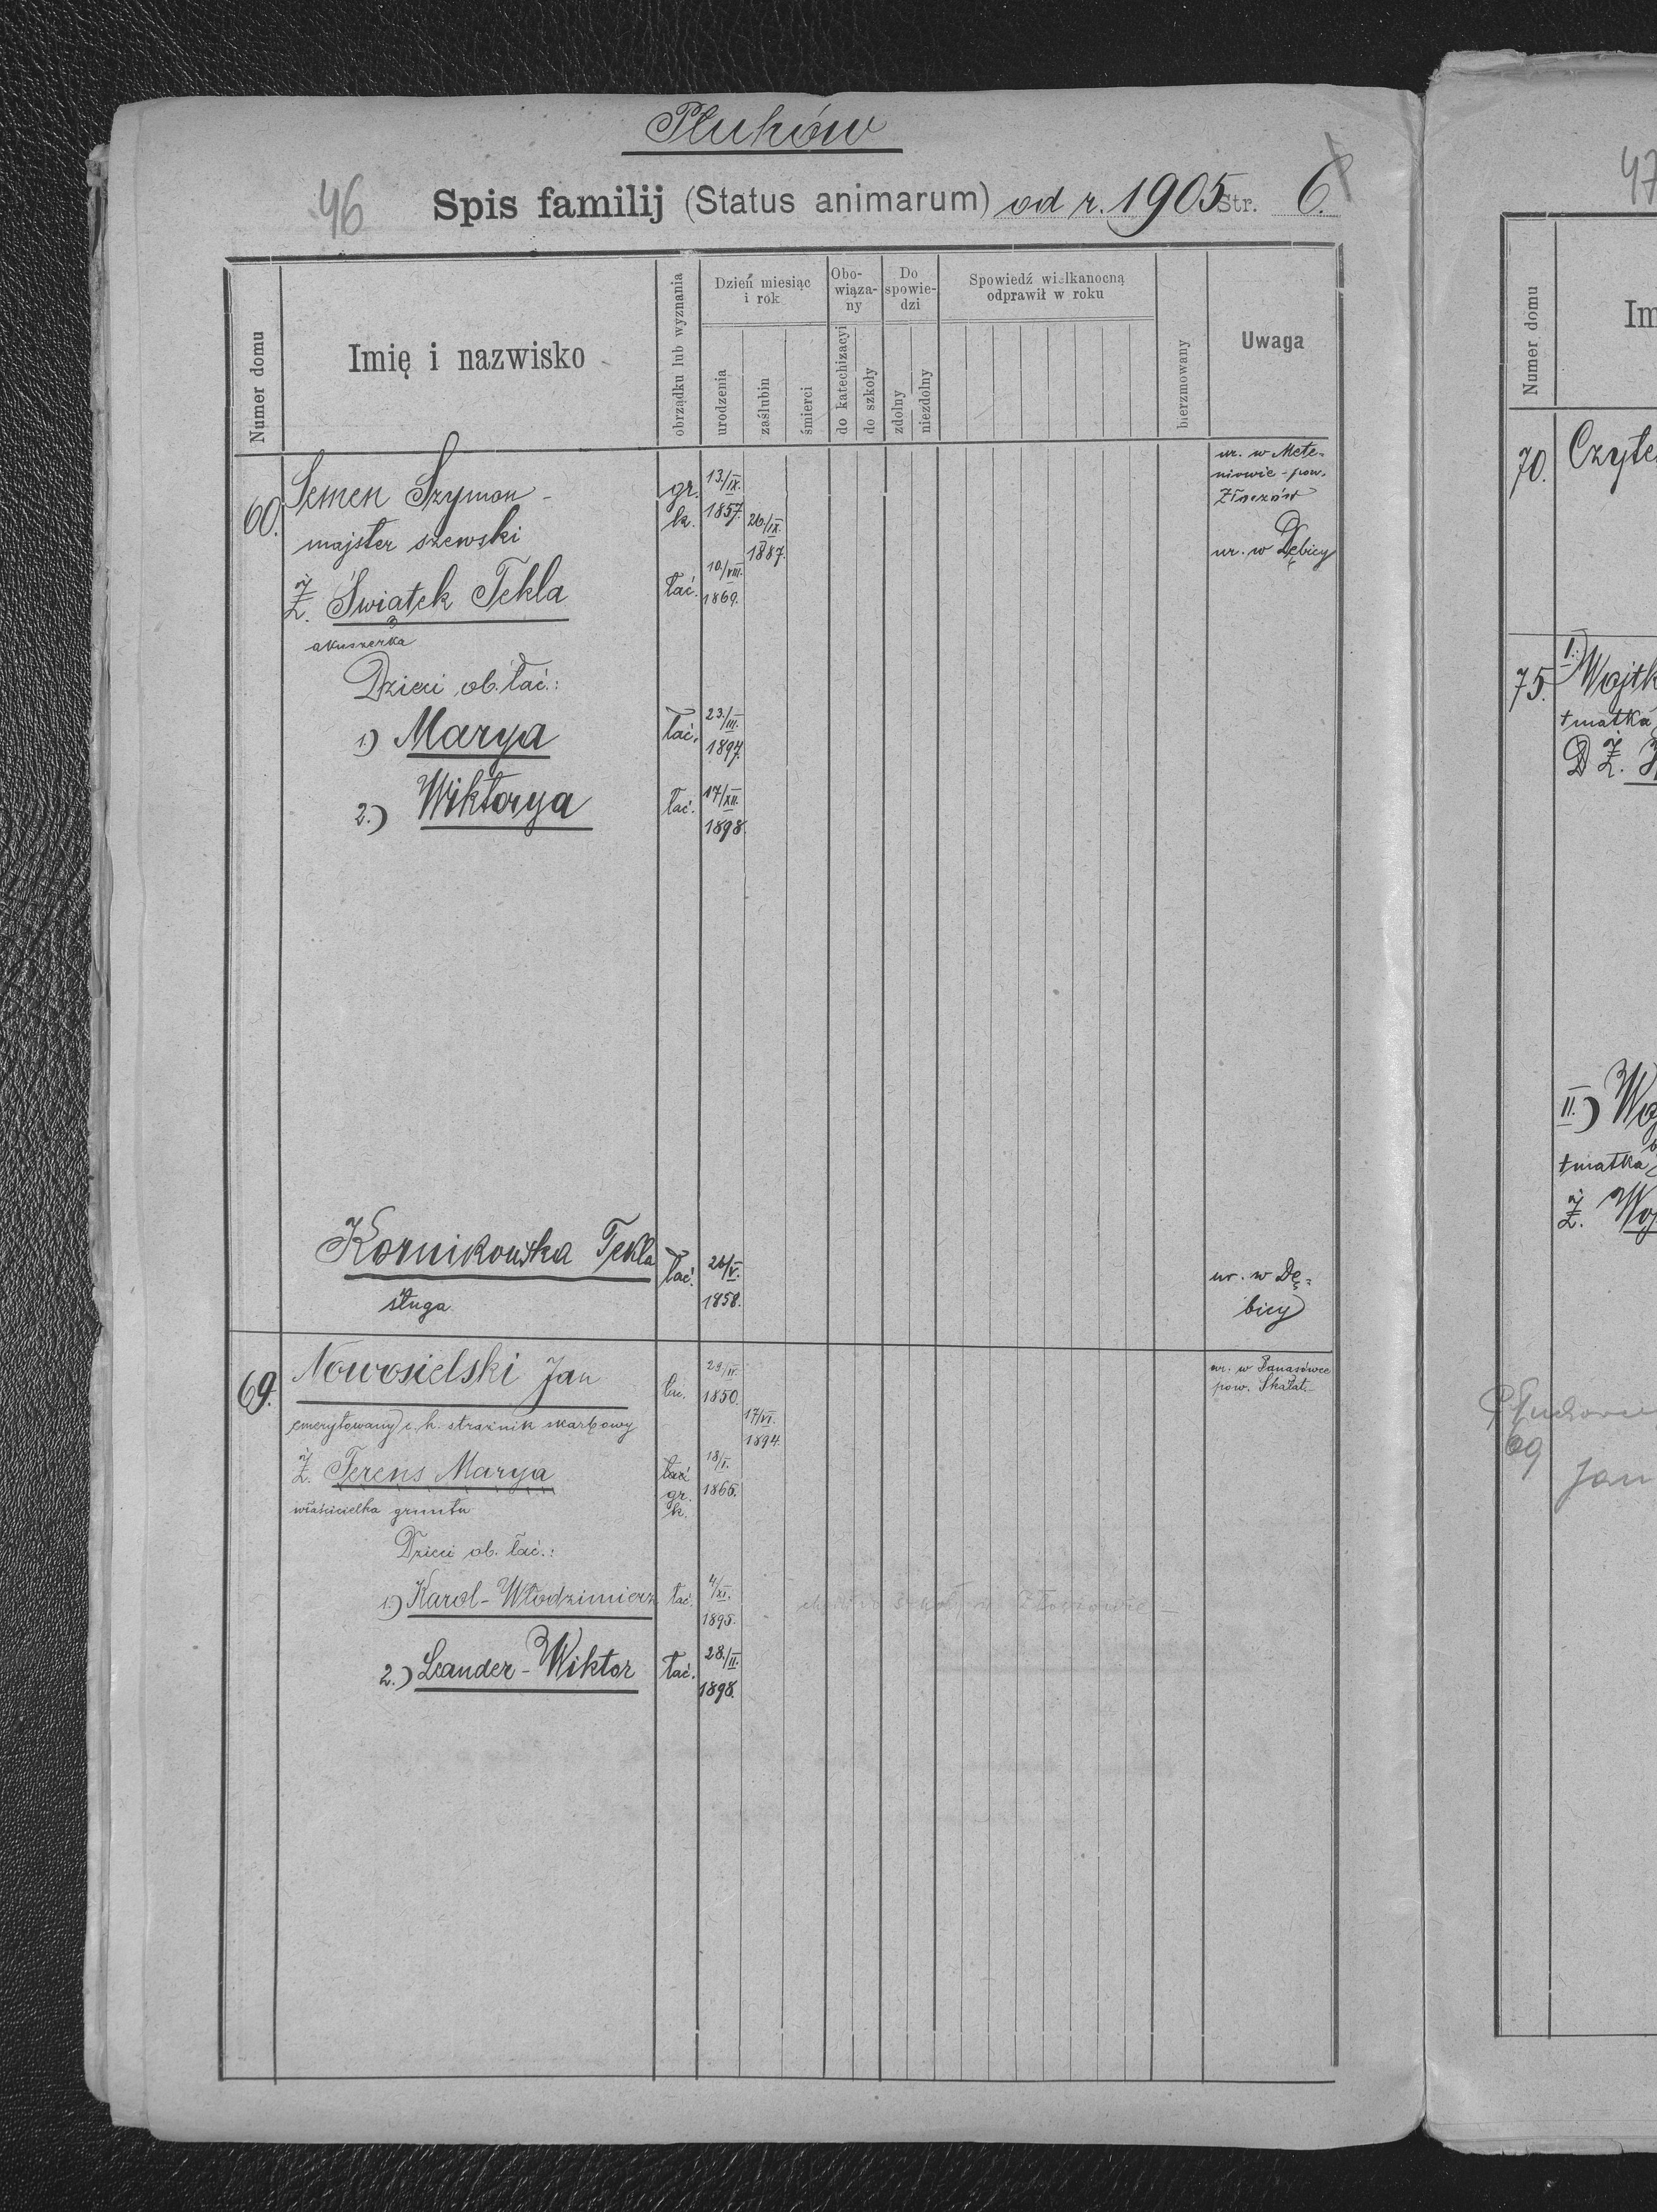 Płuhów
46 Spis familij (Status animarum) od r. 1905 Str. 6.
Numer domu
Imię i nazwisko
obrządku lub wyznania
Dzień miesiąc i rok
urodzenia
zaślubin
śmierci
Obo-
wiąza-
ny
do katechizacyi
do szkoły
Do
spowie-
dzi
zdolny
niezdolny
Spowiedź wielkanocną
odprawił w roku
bierzmowany
Uwaga
60. Semen Szymon - gr. k. 13./IX. 1857. ur. w Mete=
niowie - pow.
Złoczów
majster szewski 26/IX. 1887.
Ż. Świątek Tekla łać. 10./VIII. 1869. ur. w Dębicy
akuszerka
Dzieci ob. łać.:
1) Marya łać. 23./III. 1897.
2.) Wiktorya łać. 17/XII. 1898.
Kornikowska Tekla łać. 26/V. 1858. ur. w Dę=
bicy
sługa
69. Nowosielski Jan łac. 29./IV. 1850. ur. w Panasówce
pow. Skałat
emerytowany c. k. strażnik skarbowy 17/VI. 1894.
Ż. Ferens Marya łać gr. k. 18/I. 1866.
właścicielka gruntu
Dzieci ob. łać.:
1.) Karol - Włodzimierz łać. 4/XI. 1895. w Złoczowie
2.) Leander - Wiktor łać. 28./II. 1898.
47
Numer domu
Im
70. Czyte
75. I.) Wojtk
† matka
D Ż.
II.) Wo
† matka
Ż. Woj
69
Jan